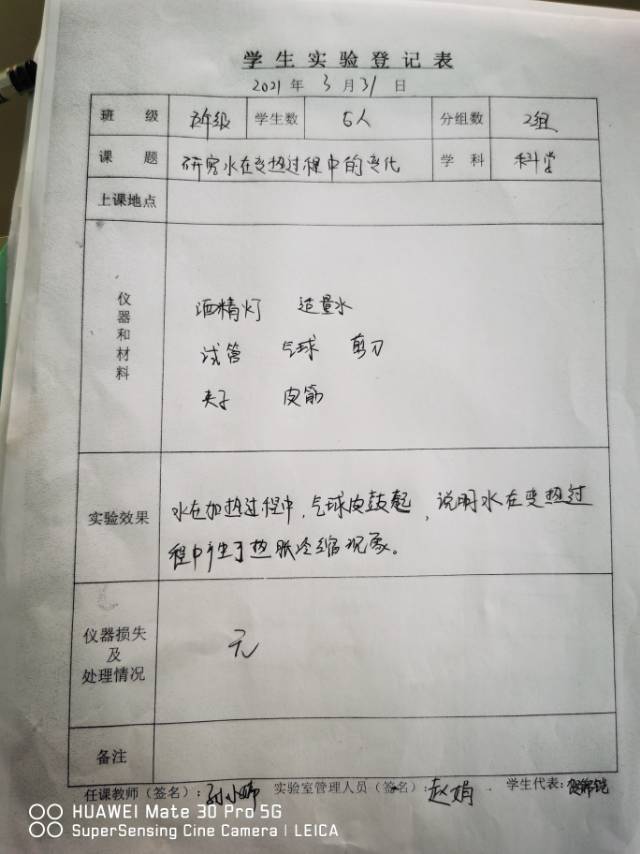 学生实验登记表
2021年 3月31日
班级 五年级 学生数 5人 分组数 2组
课题 研究水在变热过程中的变化 学科 科学
上课地点
仪器和材料
酒精灯 适量水
试管 气球 剪刀
夹子 皮筋
实验效果
水在加热过程中,气球皮鼓起,说明水在变热过
程中产生了热胀冷缩现象。
仪器损失
及
处理情况
无
备注
任课教师(签名):孙小婷 实验室管理人员(签名):赵娟 学生代表:
HUAWEI Mate 30 Pro 5G
SuperSensing Cine Camera | LEICA